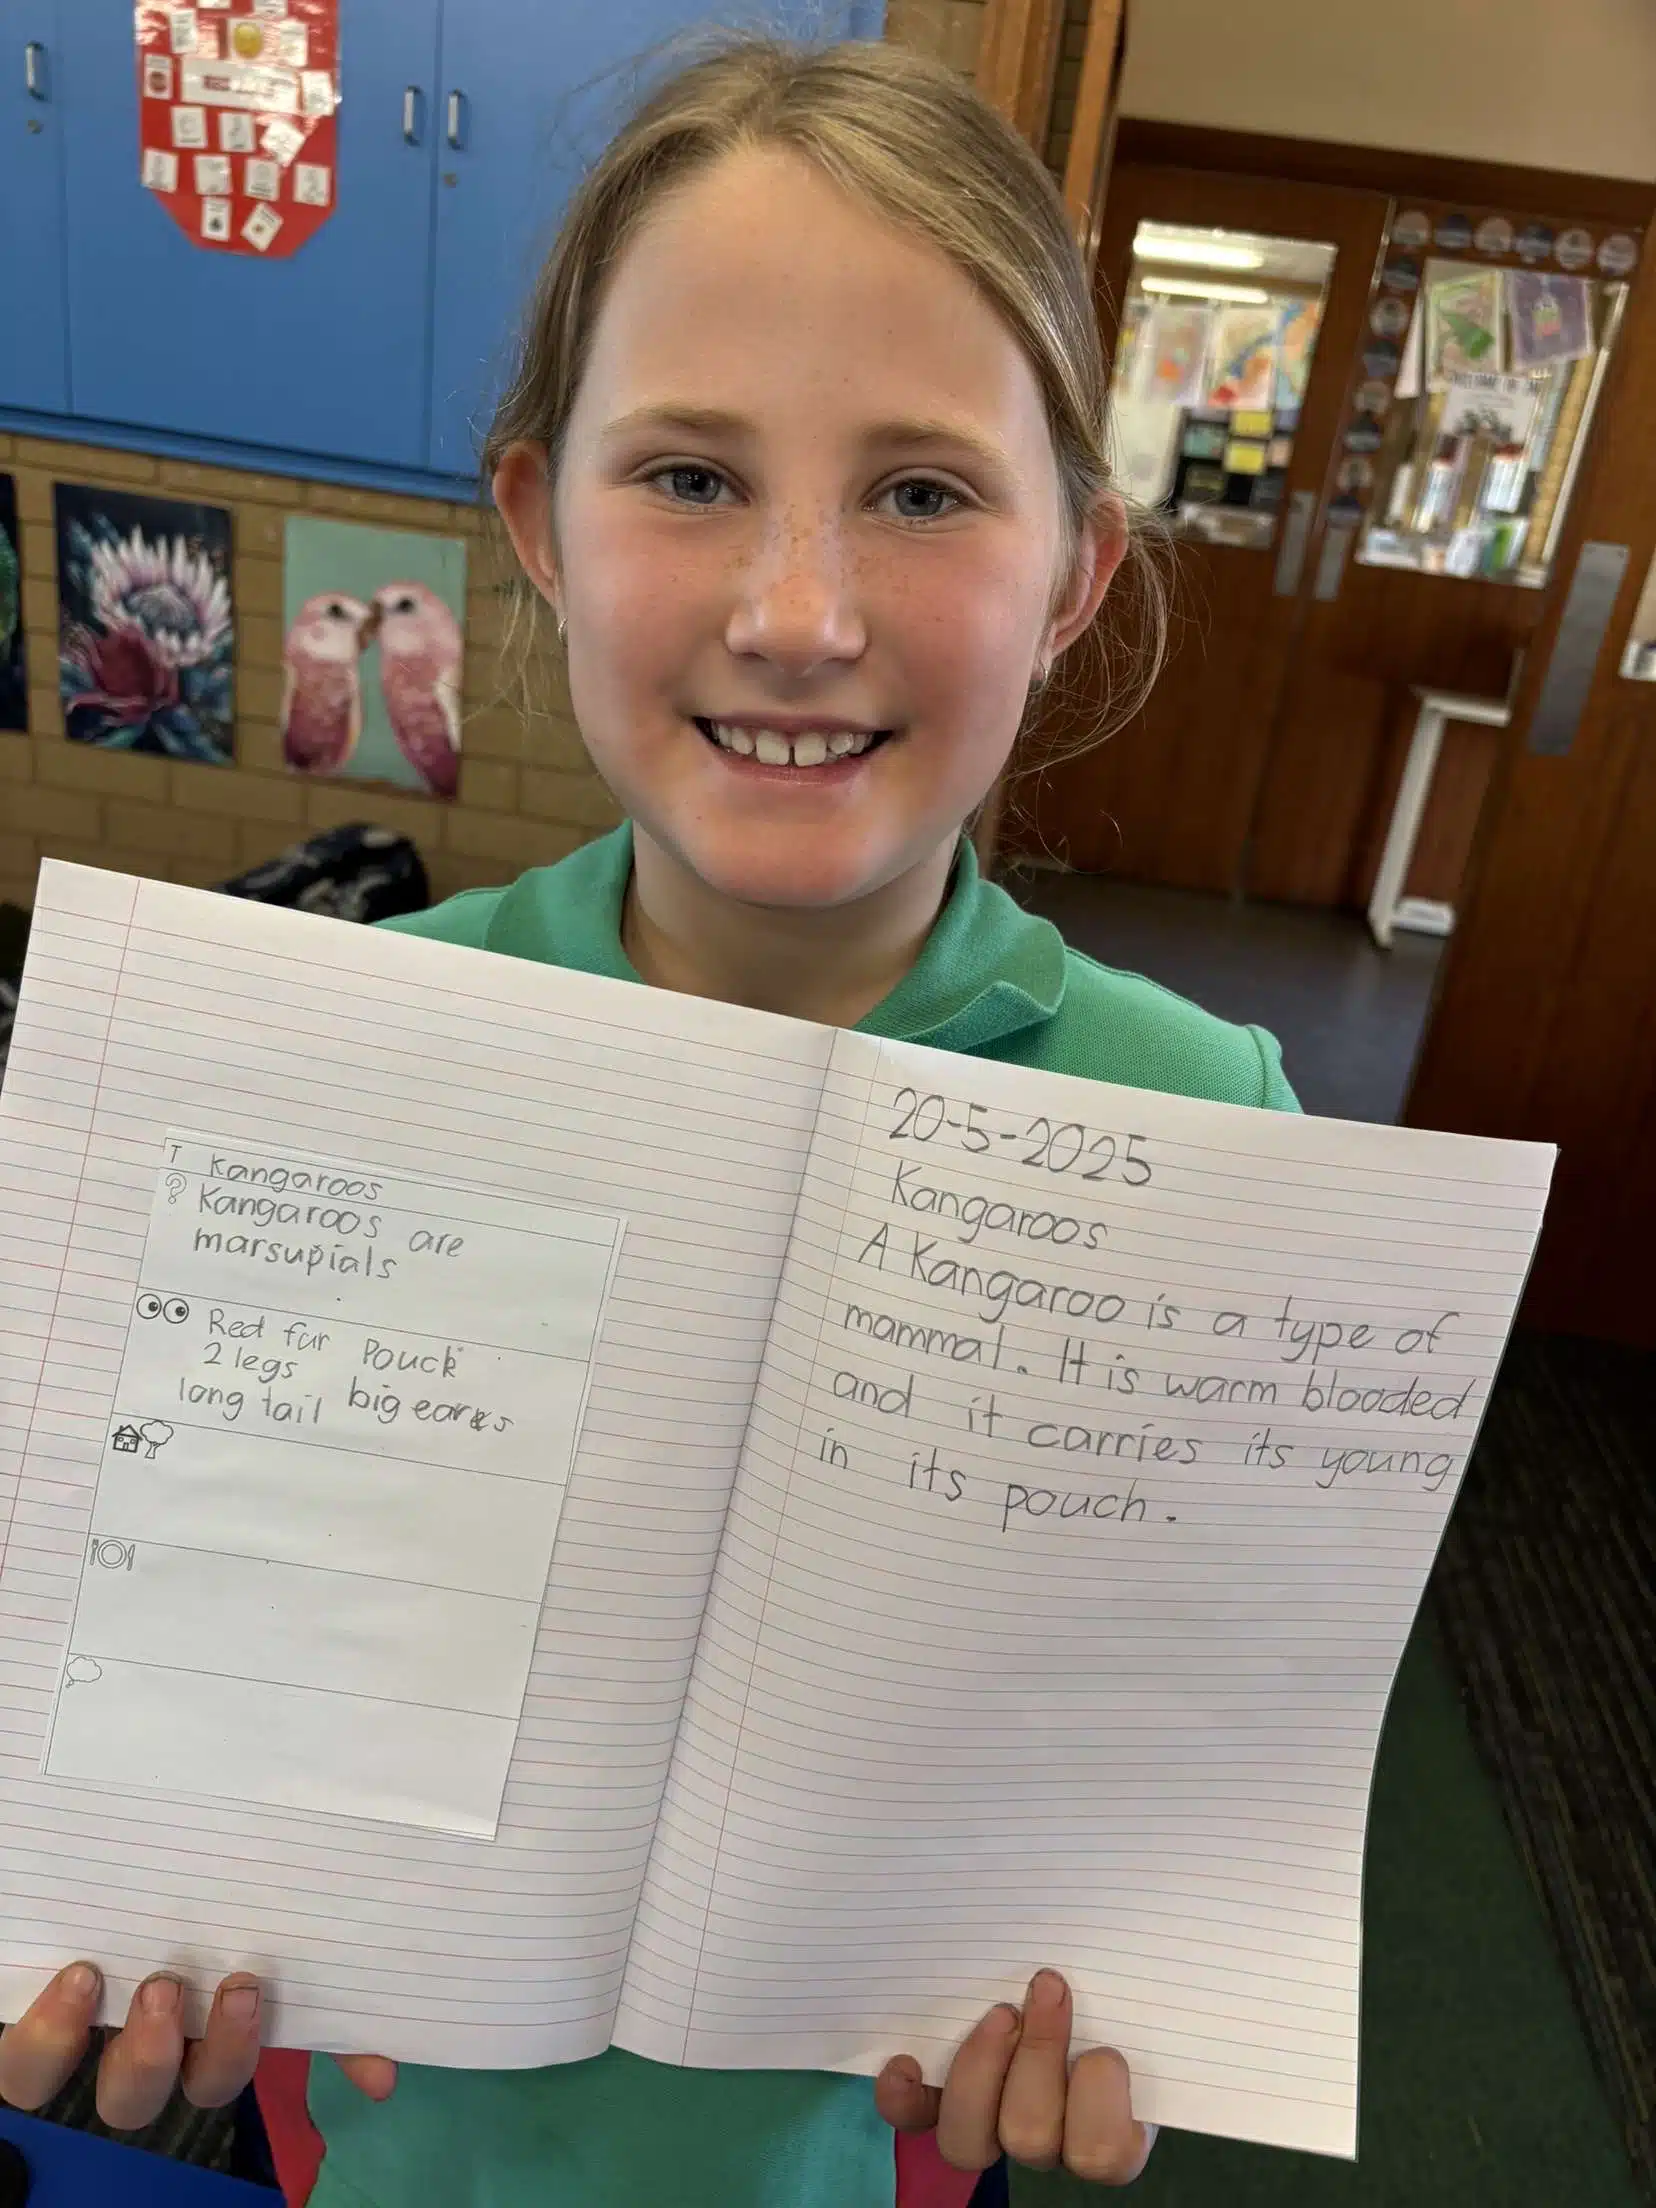 T Kangaroos
? Kangaroos are
marsupials
Red fur Pouck
2 legs
long tail big ears
20-5-2025
Kangaroos
A Kangaroo is a type of
mammal. It is warm blooded
and it carries its young
in its pouch.